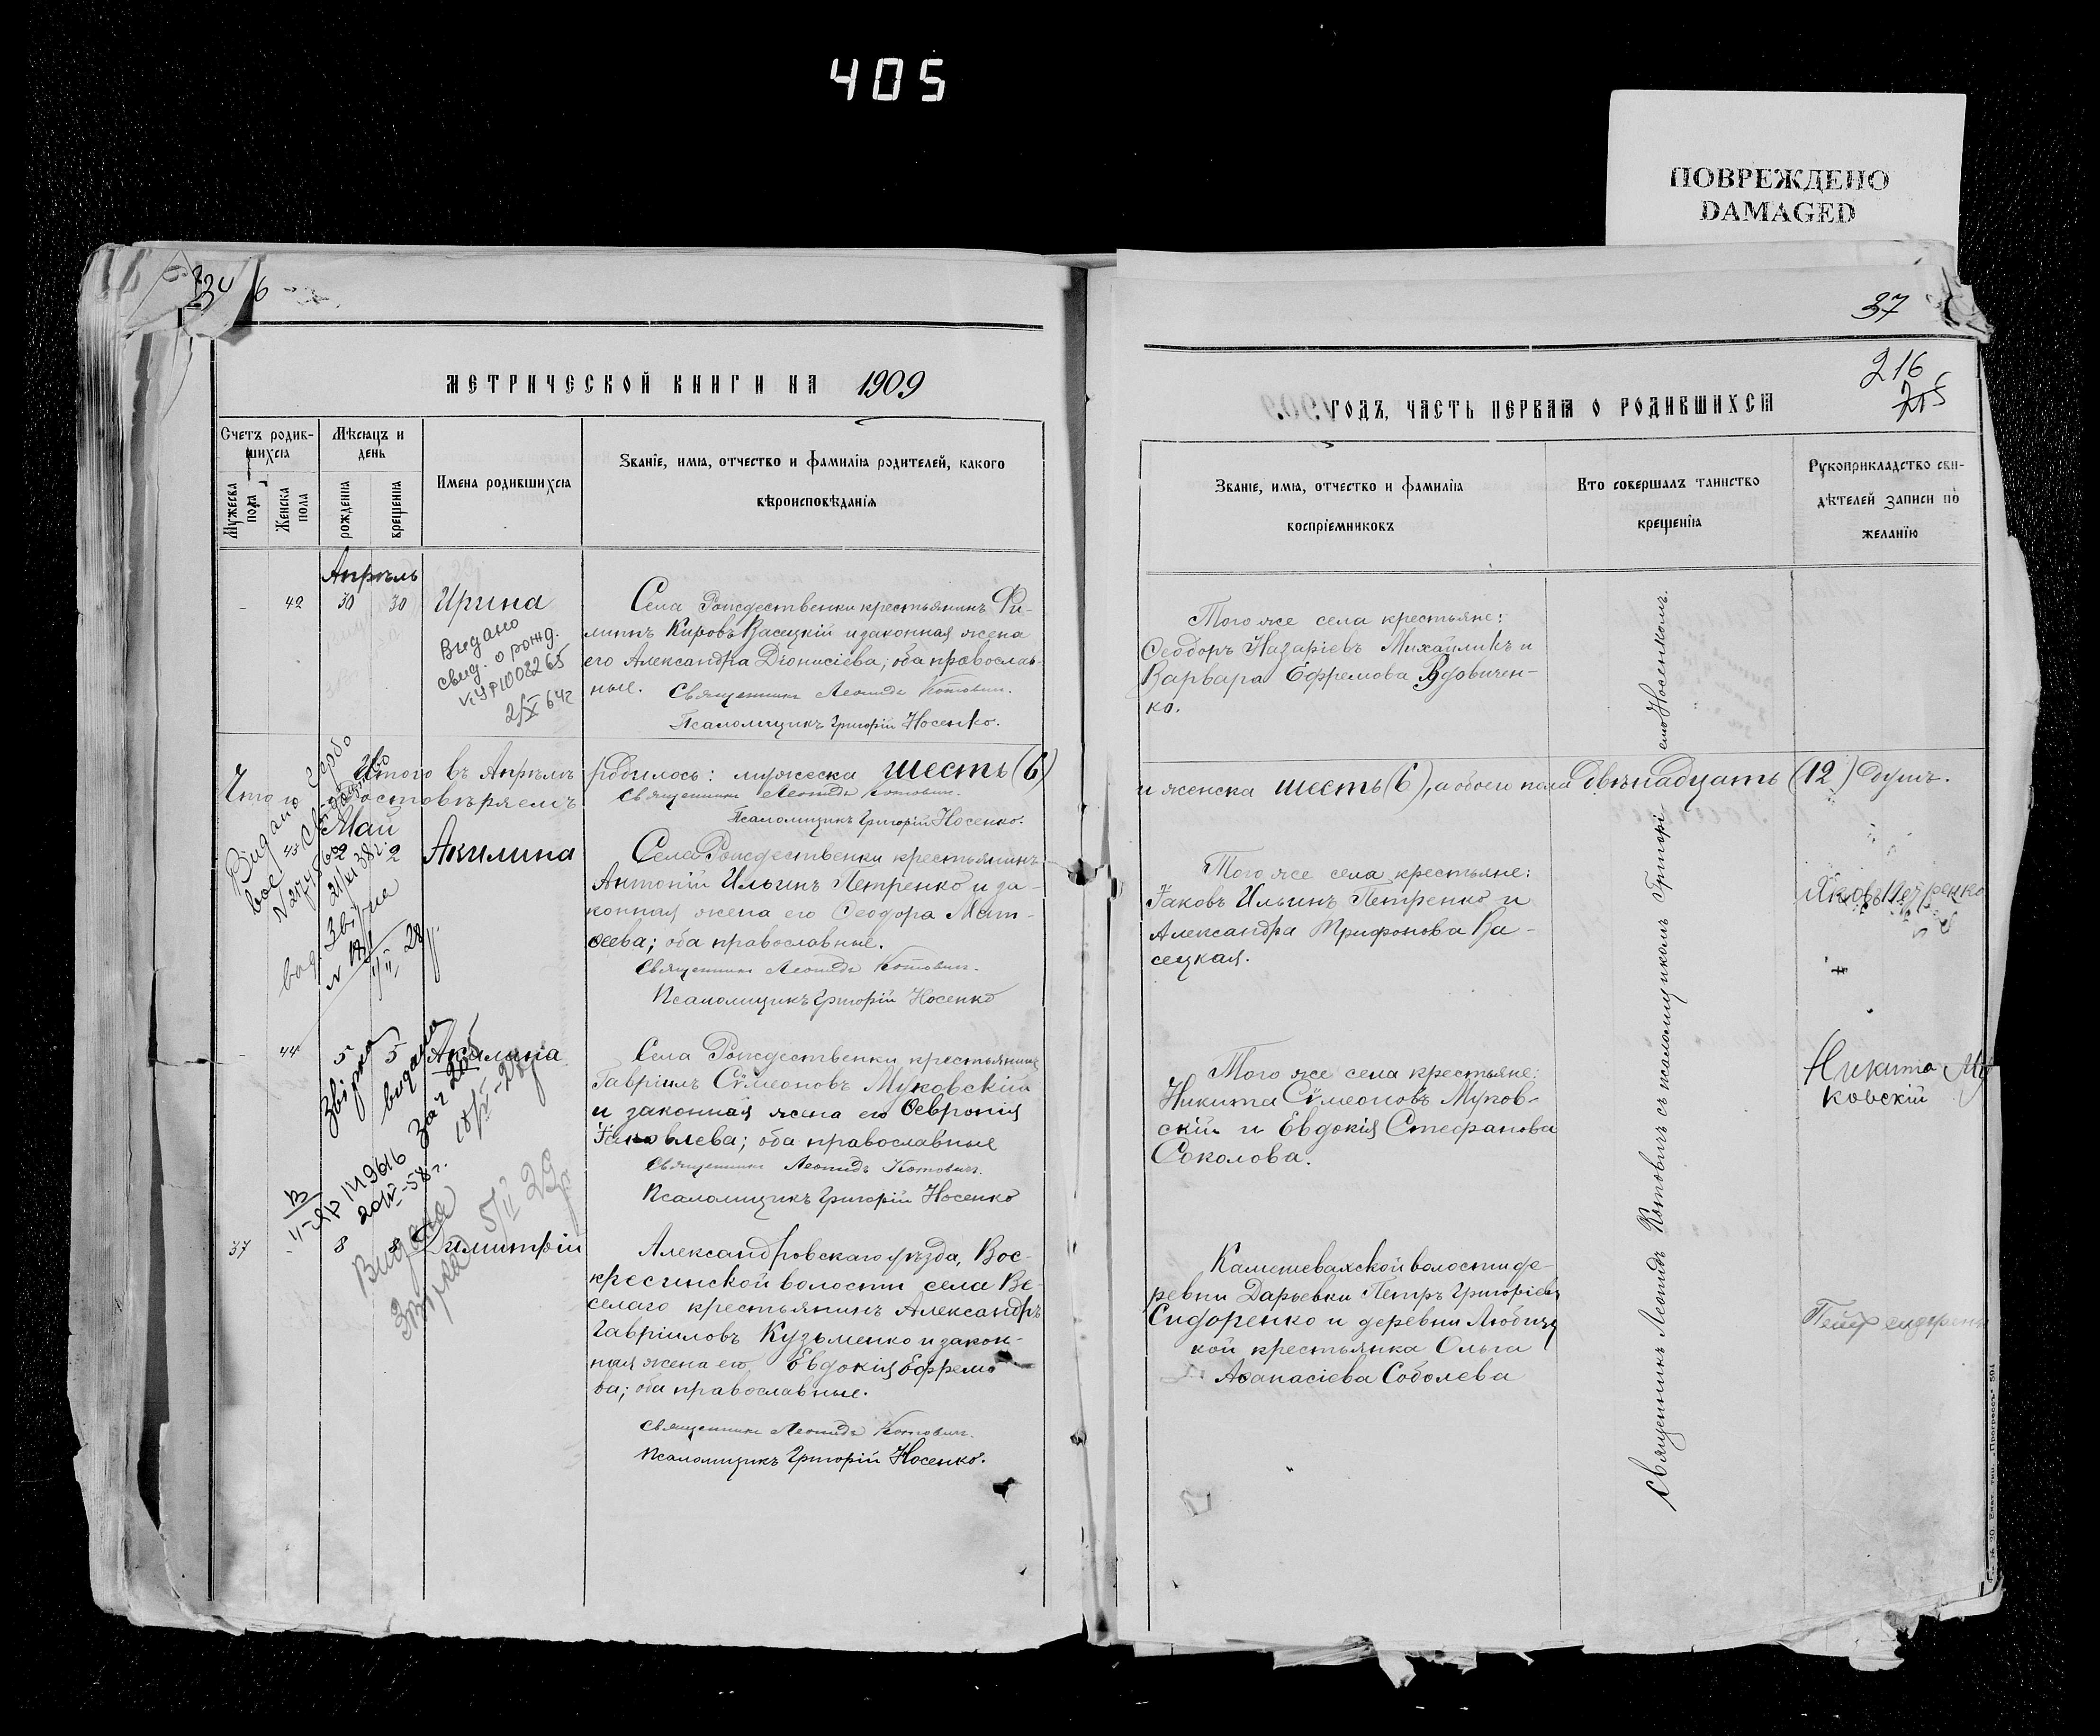 405
ПОВРЕЖДЕНО
DAMAGED
37
216
МЕТРИЧЕСКОЙ КНИГИ НА 1909
Счетъ родившихся
Мужеска пола
Женска пола
Мѣсяцъ и день
рожденія
крещенія
Имена родившихся
Званіе, имя, отчество и фамилія родителей, какого
вѣроисповѣданія
Апрѣль
42 30 30 Ирина
Видано
свид. о рожд.
2/X 64г
Села Рождественки крестьянинъ Фи-
липпъ Кировъ Васецкій и законная жена
его Александра Діонисіева; оба православ-
ные. Священникъ Леонидъ Котович.
Псаломщикъ Григорій Носенко.
Итого въ Апрѣлѣ родилось: мужеска шесть (6)
Что и достовѣряемъ Священникъ Леонидъ Котович.
Псаломщикъ Григорій Носенко.
Май
2 2 Акилина
Села Рождественки крестьянинъ
Антоній Ильинъ Петренко и за-
конная жена его Ѳеодора Мат-
ѳеева; оба православные.
Священникъ Леонидъ Котович.
Псаломщикъ Григорій Носенко
44 5 5 Акилина
Села Рождественки крестьянинъ
Гавріилъ Сѵмеоновъ Муковскій
и законная жена его Ѳевронія
Іаковлева; оба православные
Священникъ Леонидъ Котович.
Псаломщикъ Григорій Носенко
37 - 8 8 Димитрій
Александровскаго уѣзда, Вос-
кресинской волости села Ве-
селаго крестьянинъ Александръ
Гавріиловъ Кузьменко и закон-
ная жена его Евдокія Ефремо
ва; оба православные.
Священникъ Леонидъ Котович.
Псаломщикъ Григорій Носенко.
ГОДЪ, ЧАСТЬ ПЕРВАЯ О РОДИВШИХСЯ
Званіе, имя, отчество и фамилія
воспріемниковъ
Кто совершалъ таинство
крещенія
Рукоприкладство сви-
дѣтелей записи по
желанію
Того же села крестьяне:
Ѳеодоръ Назаріевъ Михайликъ и
Варвара Ефремова Вдовичен-
ко.
и женска шесть (6), а обоего пола двѣнадцать (12) душъ.
Того же села крестьяне:
Іаковъ Ильинъ Петренко и
Александра Трифонова Ва-
сецкая.
Яковъ Петренко
Того же села крестьяне:
Никита Сѵмеоновъ Муков-
скій и Евдокія Стефанова
Соколова.
Никита Му
ковскій
Камышевахской волости де-
ревни Дарьевки Петръ Григоріевъ
Сидоренко и деревни Любиц
кой крестьянка Ольга
Аѳанасіева Соболева
Священникъ Леонидъ Котовичъ съ псаломщикомъ Григоріемъ Носенкомъ.